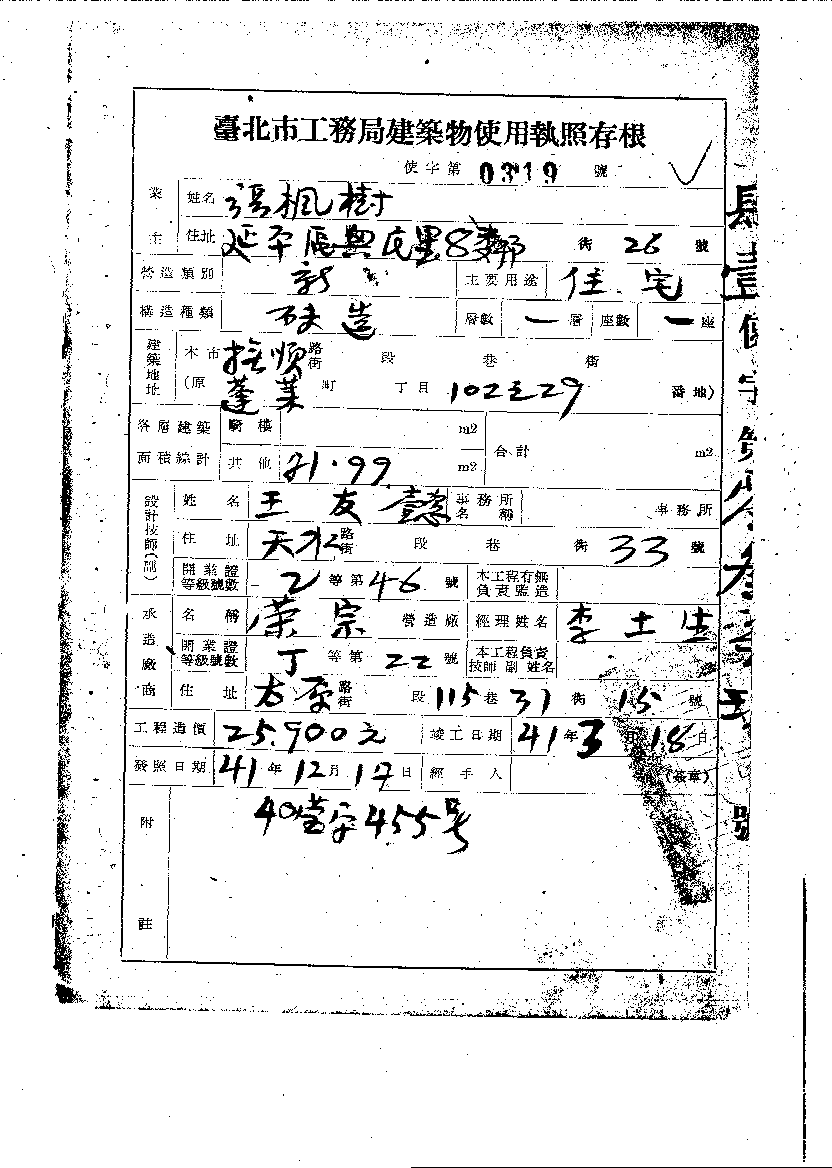 臺北市工務局建築物使用執照存根
使字第 0319 號
業主 姓名 張楓樹
住址 延平區興民里8鄰 街 26 號
營造類別 新 主要用途 住宅
構造種類 磚造 層數 一 層 座數 一 座
建築地址 本市 撫順 路街 段 巷 街
(原 蓬萊 町 丁目 102之29 番地)
各層建築面積綜計 騎樓 m2 合計 m2
其他 21.99 m2
設計技師(部) 姓名 王友 事務所名稱 事務所
住址 天水 路街 段 巷 街 33 號
開業證等級號數 乙 等第 46 號 本工程有無負責監造
承造廠商 名稱 榮宗 營造廠 經理姓名 李土生
開業證等級號數 丁 等第 22 號 本工程負責技師副姓名
住址 太原 路街 段 115 巷 31 街 15 號
工程造價 25.900元 竣工日期 41年3月18日
發照日期 41年12月17日 經手人 (簽章)
附註 40營字455号
肆壹使字第 號